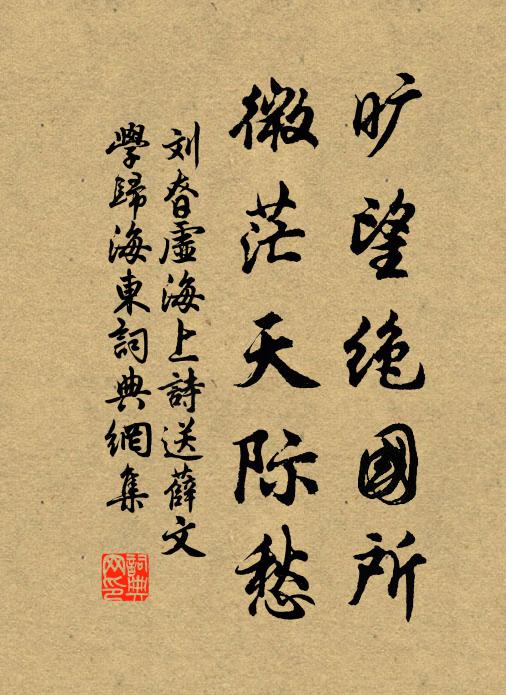 旷望绝國所
微茫天际愁
刘昚虚海上詩送薛文
學歸海東詞典網集
詞典
网印